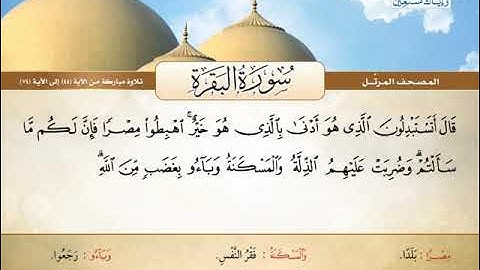 وإياك نستعين
المصحف المرتل
سُورَةُ الْبَقَرَةِ
تلاوة مباركة من الآية (٤٤) إلى الآية (٧٤)
قَالَ أَتَسْتَبْدِلُونَ ٱلَّذِى هُوَ أَدْنَىٰ بِٱلَّذِى هُوَ خَيْرٌ ۚ ٱهْبِطُوا۟ مِصْرًا فَإِنَّ لَكُم مَّا
سَأَلْتُمْ ۗ وَضُرِبَتْ عَلَيْهِمُ ٱلذِّلَّةُ وَٱلْمَسْكَنَةُ وَبَآءُو بِغَضَبٍ مِّنَ ٱللَّهِ ۗ
مِصْرًا : بَلَدًا. وَالْمَسْكَنَةُ : فَقْرُ النَّفْسِ. وَبَآءُو : رَجَعُوا.